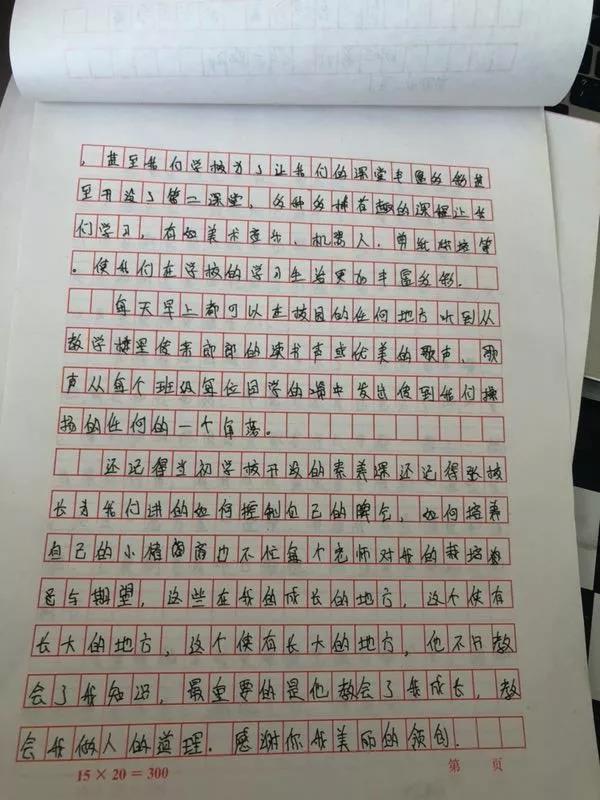 ，甚至我们学校为了让我们的课堂丰富多彩甚
至开设了第二课堂，各种各样有趣的课程让我
们学习，有如美术音乐，机器人，剪纸
。使我们在学校的学习生活更加丰富多彩．
每天早上都可以在校园的任何地方听到从
教学楼里传来郎郎的读书声或优美的歌声，歌
声从每个班级每位同学的口中发出传到我们操
场的任何的一个角落。
还记得当初学校开设的素养课还记得张校
长为我们讲的如何控制自己的脾气，如何培养
自己的小情商也不忘每个老师对我的栽培
与期望，这些在我的成长的地方，这个使有
长大的地方，这个使有长大的地方，他不只教
会了我知识，最重要的是他教会了我成长，教
会我做人的道理．感谢你我美丽的
15 × 20 = 300
第 页